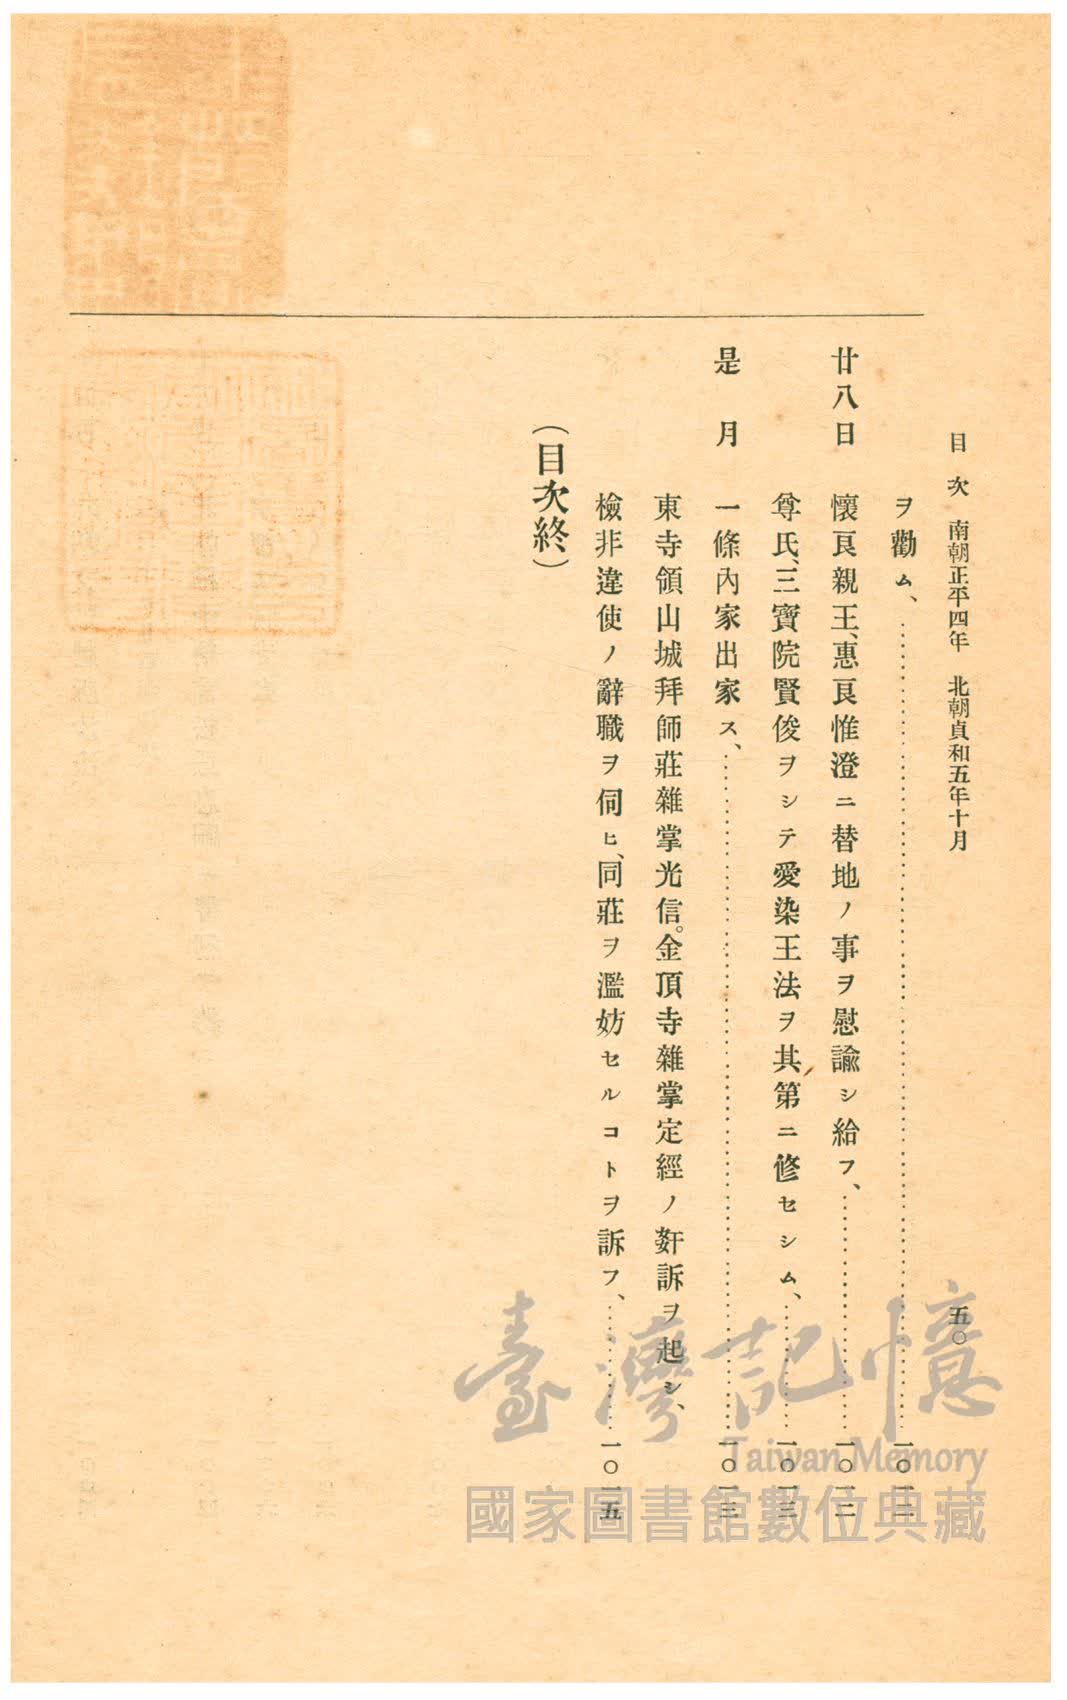 目次　南朝正平四年　北朝貞和五年十月　五〇
ヲ勸ム、……一〇一二
廿八日　懷良親王、惠良惟澄ニ替地ノ事ヲ慰諭シ給フ、……一〇一二
尊氏、三寶院賢俊ヲシテ愛染王法ヲ其第ニ修セシム、……一〇一三
是月　一條內家出家ス、……一〇一三
東寺領山城拜師莊雜掌光信。金頂寺雜掌定經ノ姧訴ヲ起シ、
檢非違使ノ辭職ヲ伺ヒ、同莊ヲ濫妨セルコトヲ訴フ、……一〇一五
（目次終）
臺灣記憶
Taiwan Memory
國家圖書館數位典藏